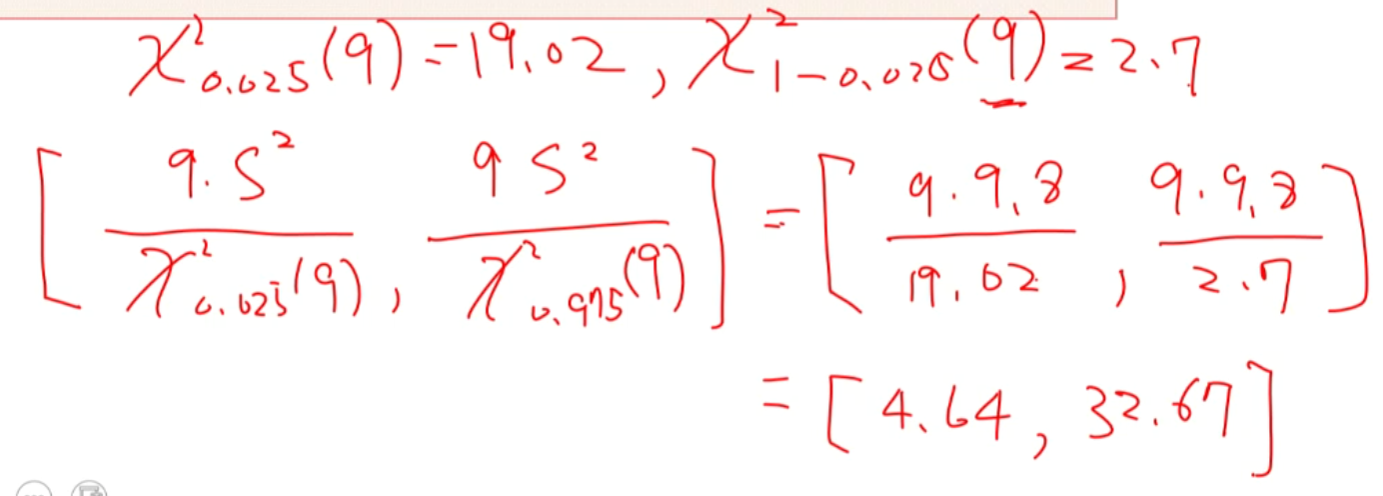 χ²₀.₀₂₅(9)=19.02, χ²₁₋₀.₀₂₅(9)=2.7
[ 9·S² / χ²₀.₀₂₅(9), 9S² / χ²₀.₉₇₅(9) ] = [ 9·9.8 / 19.02, 9·9.8 / 2.7 ]
= [4.64, 32.67]